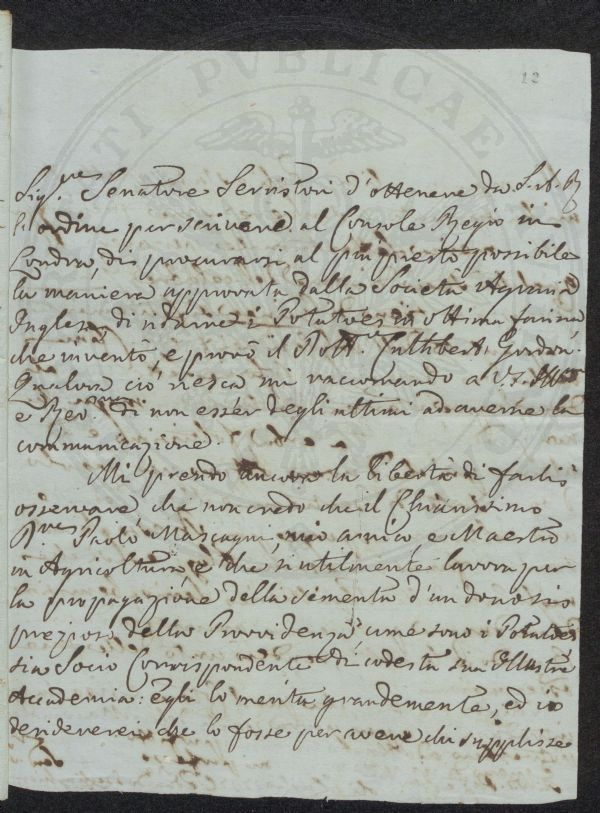 12
Sig.re Senatore Serristori d'ottenere da S. A. R
l'ordine per scrivere al Console Regio in
Londra, di procurarsi al più presto possibile
la maniera approvata dalla Società Agraria
Inglese, di ridurre i Potatoes in ottima farina
che inventò, e provò il Dott.r Cuthbert Gordon.
Qualora ciò riesca mi raccomando a V. S. Ill
e Rev.ma di non esser degli ultimi ad averne la
communicazione.
Mi prendo ancora la libertà di farli
osservare che non credo che il Chiarissimo
Paolo Mascagni, mio amico e Maestro
in Agricoltura e che sì utilmente lavora per
la propagazione della sementa d'un dono sì
prezioso della Provvidenza, come sono i Potatoes
sia Socio Corrispondente di codesta sua Illustre
Accademia: egli lo merita grandemente, ed io
desidererei che lo fosse per avere chi supplisse